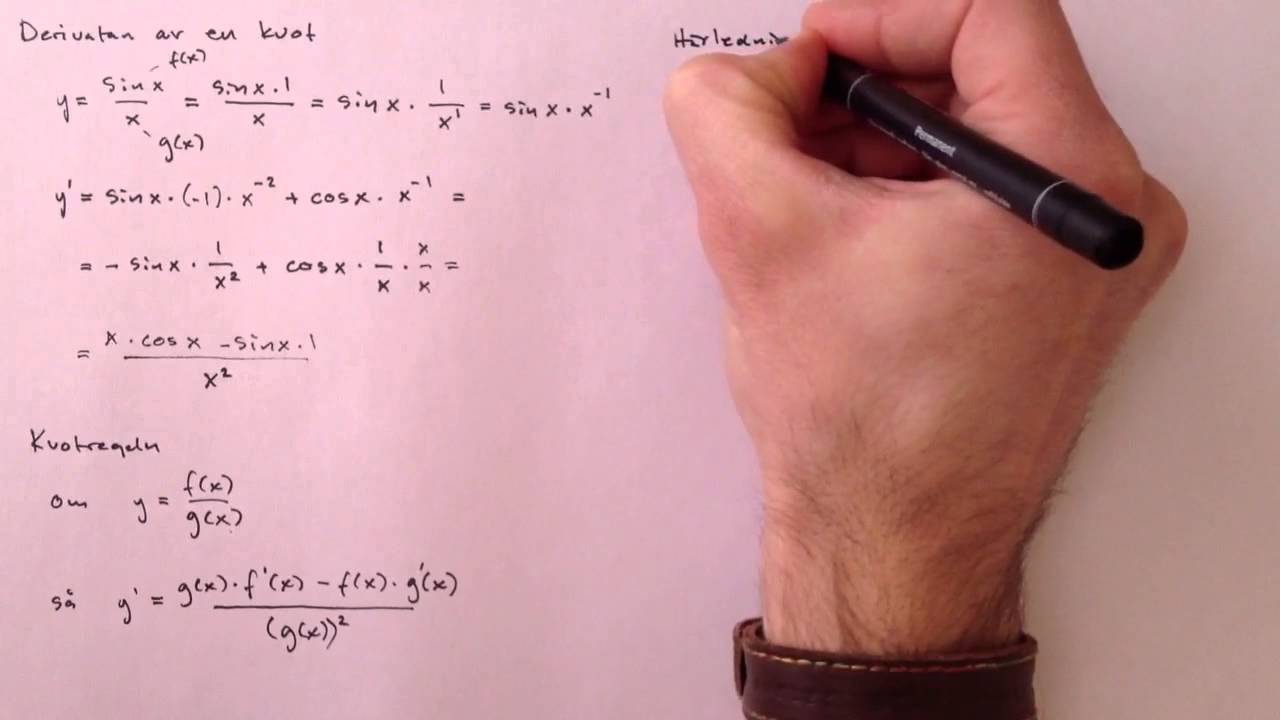 Derivatan av en kvot
f(x)
y = sin x / x = sin x · 1 / x = sin x · 1 / x¹ = sin x · x⁻¹
g(x)
y' = sin x · (-1) · x⁻² + cos x · x⁻¹ =
= - sin x · 1 / x² + cos x · 1 / x · x / x =
= x · cos x - sin x · 1 / x²
Kvotregeln
om y = f(x) / g(x)
så y' = g(x) · f'(x) - f(x) · g'(x) / (g(x))²
Härledni
Permanent